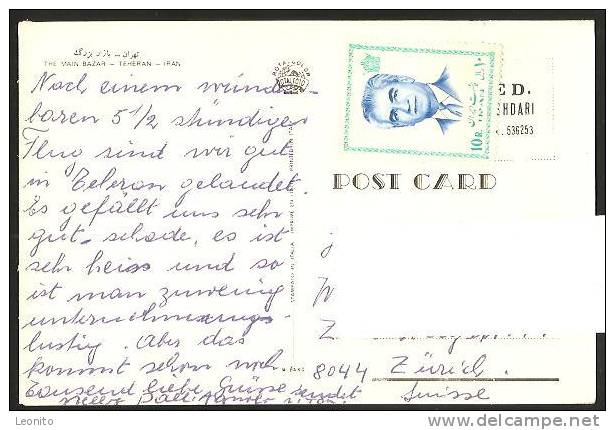 تهران - بازار بزرگ
THE MAIN BAZAR – TEHERAN – IRAN
Nach einem wunder-
baren 5 1/2 stündigen
Flug sind wir gut
in Teheran gelandet.
Es gefällt uns sehr
gut - schade, es ist
sehr heiss und so
ist man zuwenig
unternehmungs-
lustig. Aber das
kommt schon noch
Tausend liebe Grüsse sendet
ROTALCOLOR
ROTALFOTO
STAMPATO IN ITALIA
10 R.
ED.
HDARI
536253
POST CARD
J
W
Z
8044 Zürich
Suisse
Leonito
www.delcampe.net